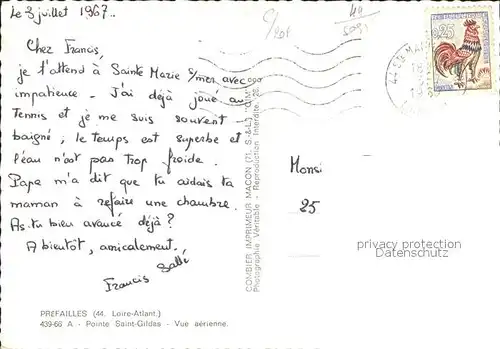 Le 3 juillet 1967..
Chez Francis,
je t'attend à Sainte Marie s/mer avec
impatience. J'ai déjà joué au
Tennis et je me suis souvent
baigné, le temps est superbe et
l'eau n'est pas trop froide.
Papa m'a dit que tu aidais ta
maman à refaire une chambre.
As-tu bien avancé déjà?
A bientôt, amicalement.
Francis
PREFAILLES (44. Loire-Atlant.)
439-66 A - Pointe Saint-Gildas - Vue aérienne.
COMBIER IMPRIMEUR MACON (71. S.-&-L.)
Photographie Véritable - Reproduction Interdite
44
0,25
Monsi
25
privacy protection